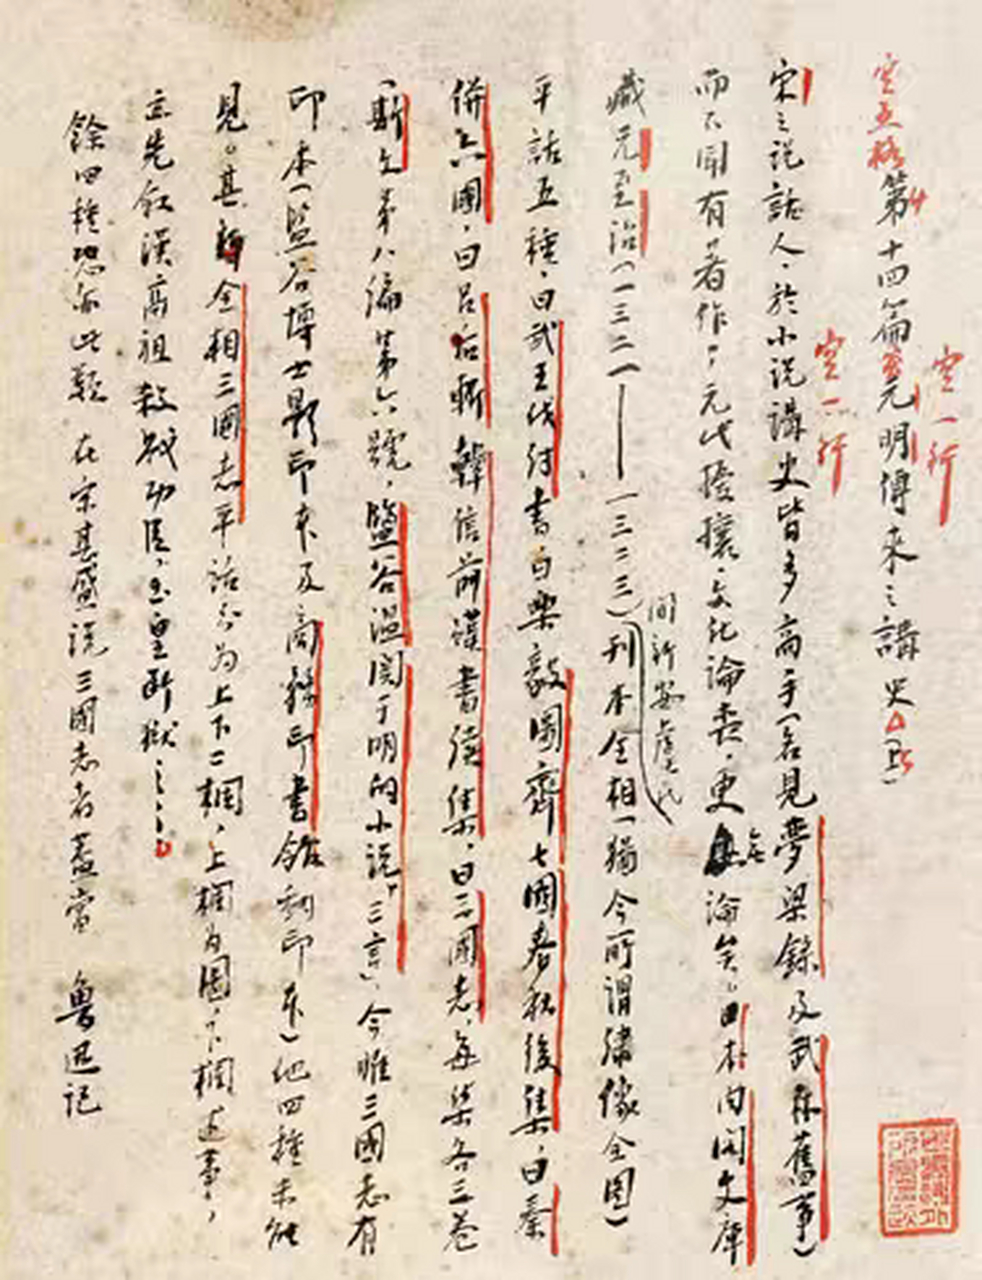 空五格第十四篇元明傳來之講史(上)
空一行
空一行
宋之說話人,於小說講史皆多高手(名見夢粱錄及武林舊事)
而不聞有著作;元代擾攘,文化淪喪,更無論矣。日本內閣文庫
藏元至治(一三二一——一三二三)刊本全相(猶今所謂繡像全圖)
間新安虞氏
平話五種,曰武王伐紂書,曰樂毅圖齊七國春秋後集,曰秦
併六國,曰呂后斬韓信前漢書續集,曰三國志,每集各三卷
(斯文第八編第六號,鹽谷溫關于明的小說「三言」)今唯三國志有
印本(鹽谷博士影印本及商務印書館翻印本)他四種未能
見。其全相三國志平話分为上下二欄,上欄为圖,下欄述事,
立先敘漢高祖殺戮功臣,玉皇斷獄
餘四種恐亦此類 在宋甚盛說三國志者蓋當 魯迅記